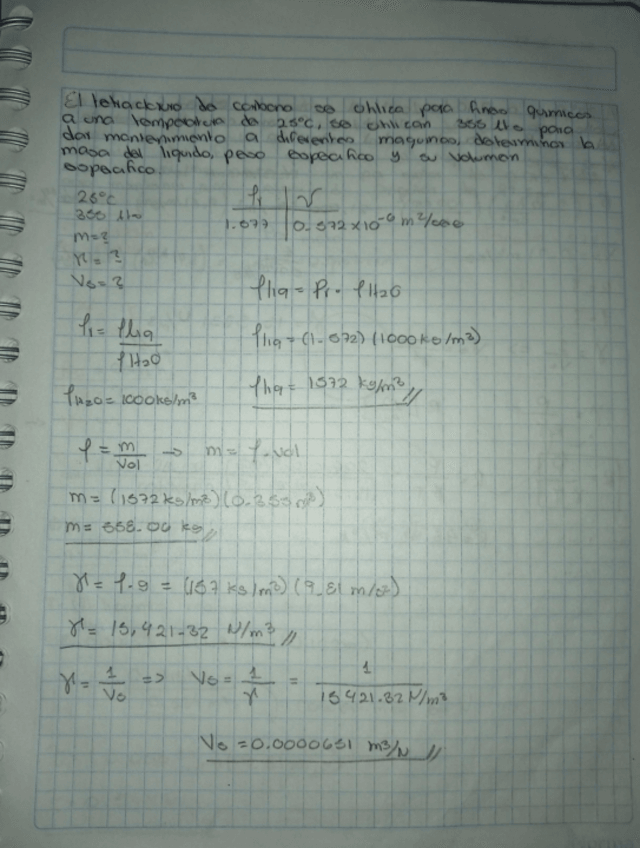 El tetracloruro de carbono se utiliza para fines quimicos
a una temperatura de 25°C, se utilizan 355 lts para
dar mantenimiento a diferentes maquinas, determinar la
masa del liquido, peso especifico y su volumen
especifico.
25°C
355 lts
m=?
γ=?
Vs=?
ρr | ν
1.577 | 0.572x10⁻⁶ m²/seg
ρliq = ρr · ρH2O
ρr = ρliq / ρH2O
ρliq = (1.572)(1000kg/m³)
ρH2O = 1000kg/m³
ρliq = 1572 kg/m³ //
ρ = m/Vol → m = ρ·vol
m = (1572kg/m³)(0.355m³)
m = 558.06 kg //
γ = ρ·g = (157 kg/m³)(9.81 m/s²)
γ = 15,421.32 N/m³ //
γ = 1/Vs => Vs = 1/γ = 1/15421.32 N/m³
Vs = 0.0000651 m³/N //